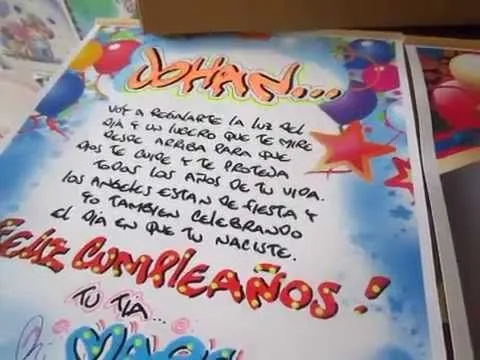 JOHAN...
VOY A REGALARTE LA LUZ DEL
DIA Y UN LUCERO QUE TE MIRE
DESDE ARRIBA PARA QUE
DIOS TE CUIDE Y TE PROTEJA
TODOS LOS AÑOS DE TU VIDA.
LOS ANGELES ESTAN DE FIESTA Y
YO TAMBIEN CELEBRANDO
EL DIA EN QUE TU NACISTE.
FELIZ CUMPLEAÑOS!
TU TIA...